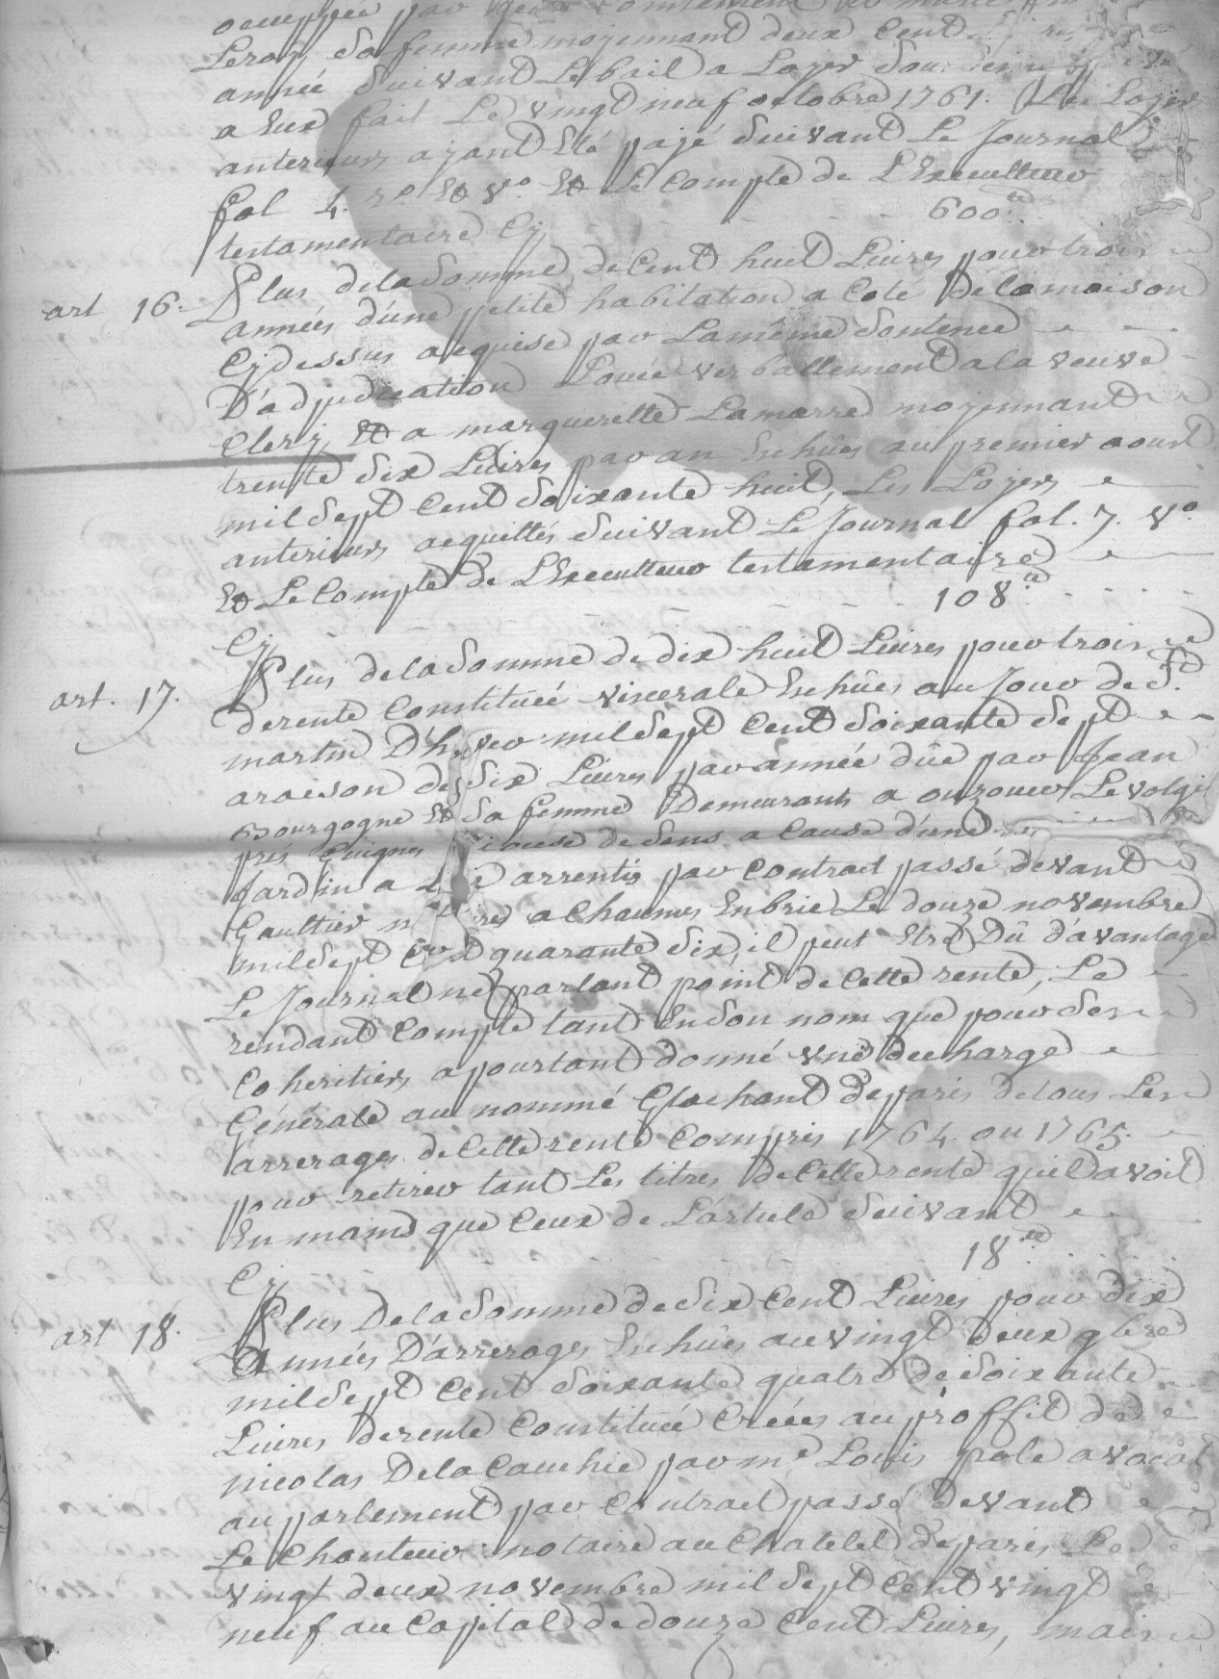 occuppée par
Leroy Sa femme moyennant deux Cent
année Suivant Le bail a Loyer Sou
a Eux fait Le vingt neuf octobre 1761. Les Loyers
anterieurs ayant Eté payé Suivant Le Journal
fol 4. ro Et vo. Et Le Compte de L'Executteur
testamentaire Cy 600.lt
art 16. Plus de la Somme de Cent huit Livres pour trois
années d'une petite habitation a Coté De la maison
Cy dessus acquise par La même Sentence
D'adjudication Louée verballement a la veuve
Clery Et a marguerette Lamarre moyennant
trente Six Livres par an Echûes au premier aoust
mil Sept Cent Soixante huit, Les Loyers
anterieurs acquittés Suivant Le Journal fol. 7. vo
Et Le Compte de L'Executteur testamentaire
Cy 108.lt
art. 17. Plus de la Somme de dix huit Livres pour trois
de rente Constituée viscerale Echûes au Jour de St
martin D'hyver mil Sept Cent Soixante Sept
a raison de Six Livres par année dûe par Jean
Bourgogne Et Sa femme Demeurants a ouzouer Le volgis
prés Guignes de Sens a Cause d'une
Jardin a arrentis par Contract passé devant
Gaultier a Chaumes En brie Le douze novembre
mil Sept Cent quarante Six, il peut Etre Dû d'avantage
Le Journal ne parlant point de Cette rente, Le
rendant Compte tant En Son nom que pour Ses
Coheritiers a pourtant donné une decharge
Générale au nommé Glachant de paris de tous Les
arrerages de Cette rente Compris 1764. ou 1765.
pour retirer tant Les titres de Cette rente qu'il avoit
En mains que Ceux de L'article Suivant
Cy 18.lt
art 18. Plus De la Somme de Six Cent Livres pour dix
Années D'arrerages Echûes au vingt deux 9bre
mil Sept Cent Soixante quatre de Soixante
Livres de rente Constituée Créées au proffit de
nicolas De la Cauchie par me Louis pole avocat
au parlement par Contract passé devant
Le Chanteur notaire au Chatelet de paris Le
vingt deux novembre mil Sept Cent vingt
neuf au Capital de douze Cent Livres, mais